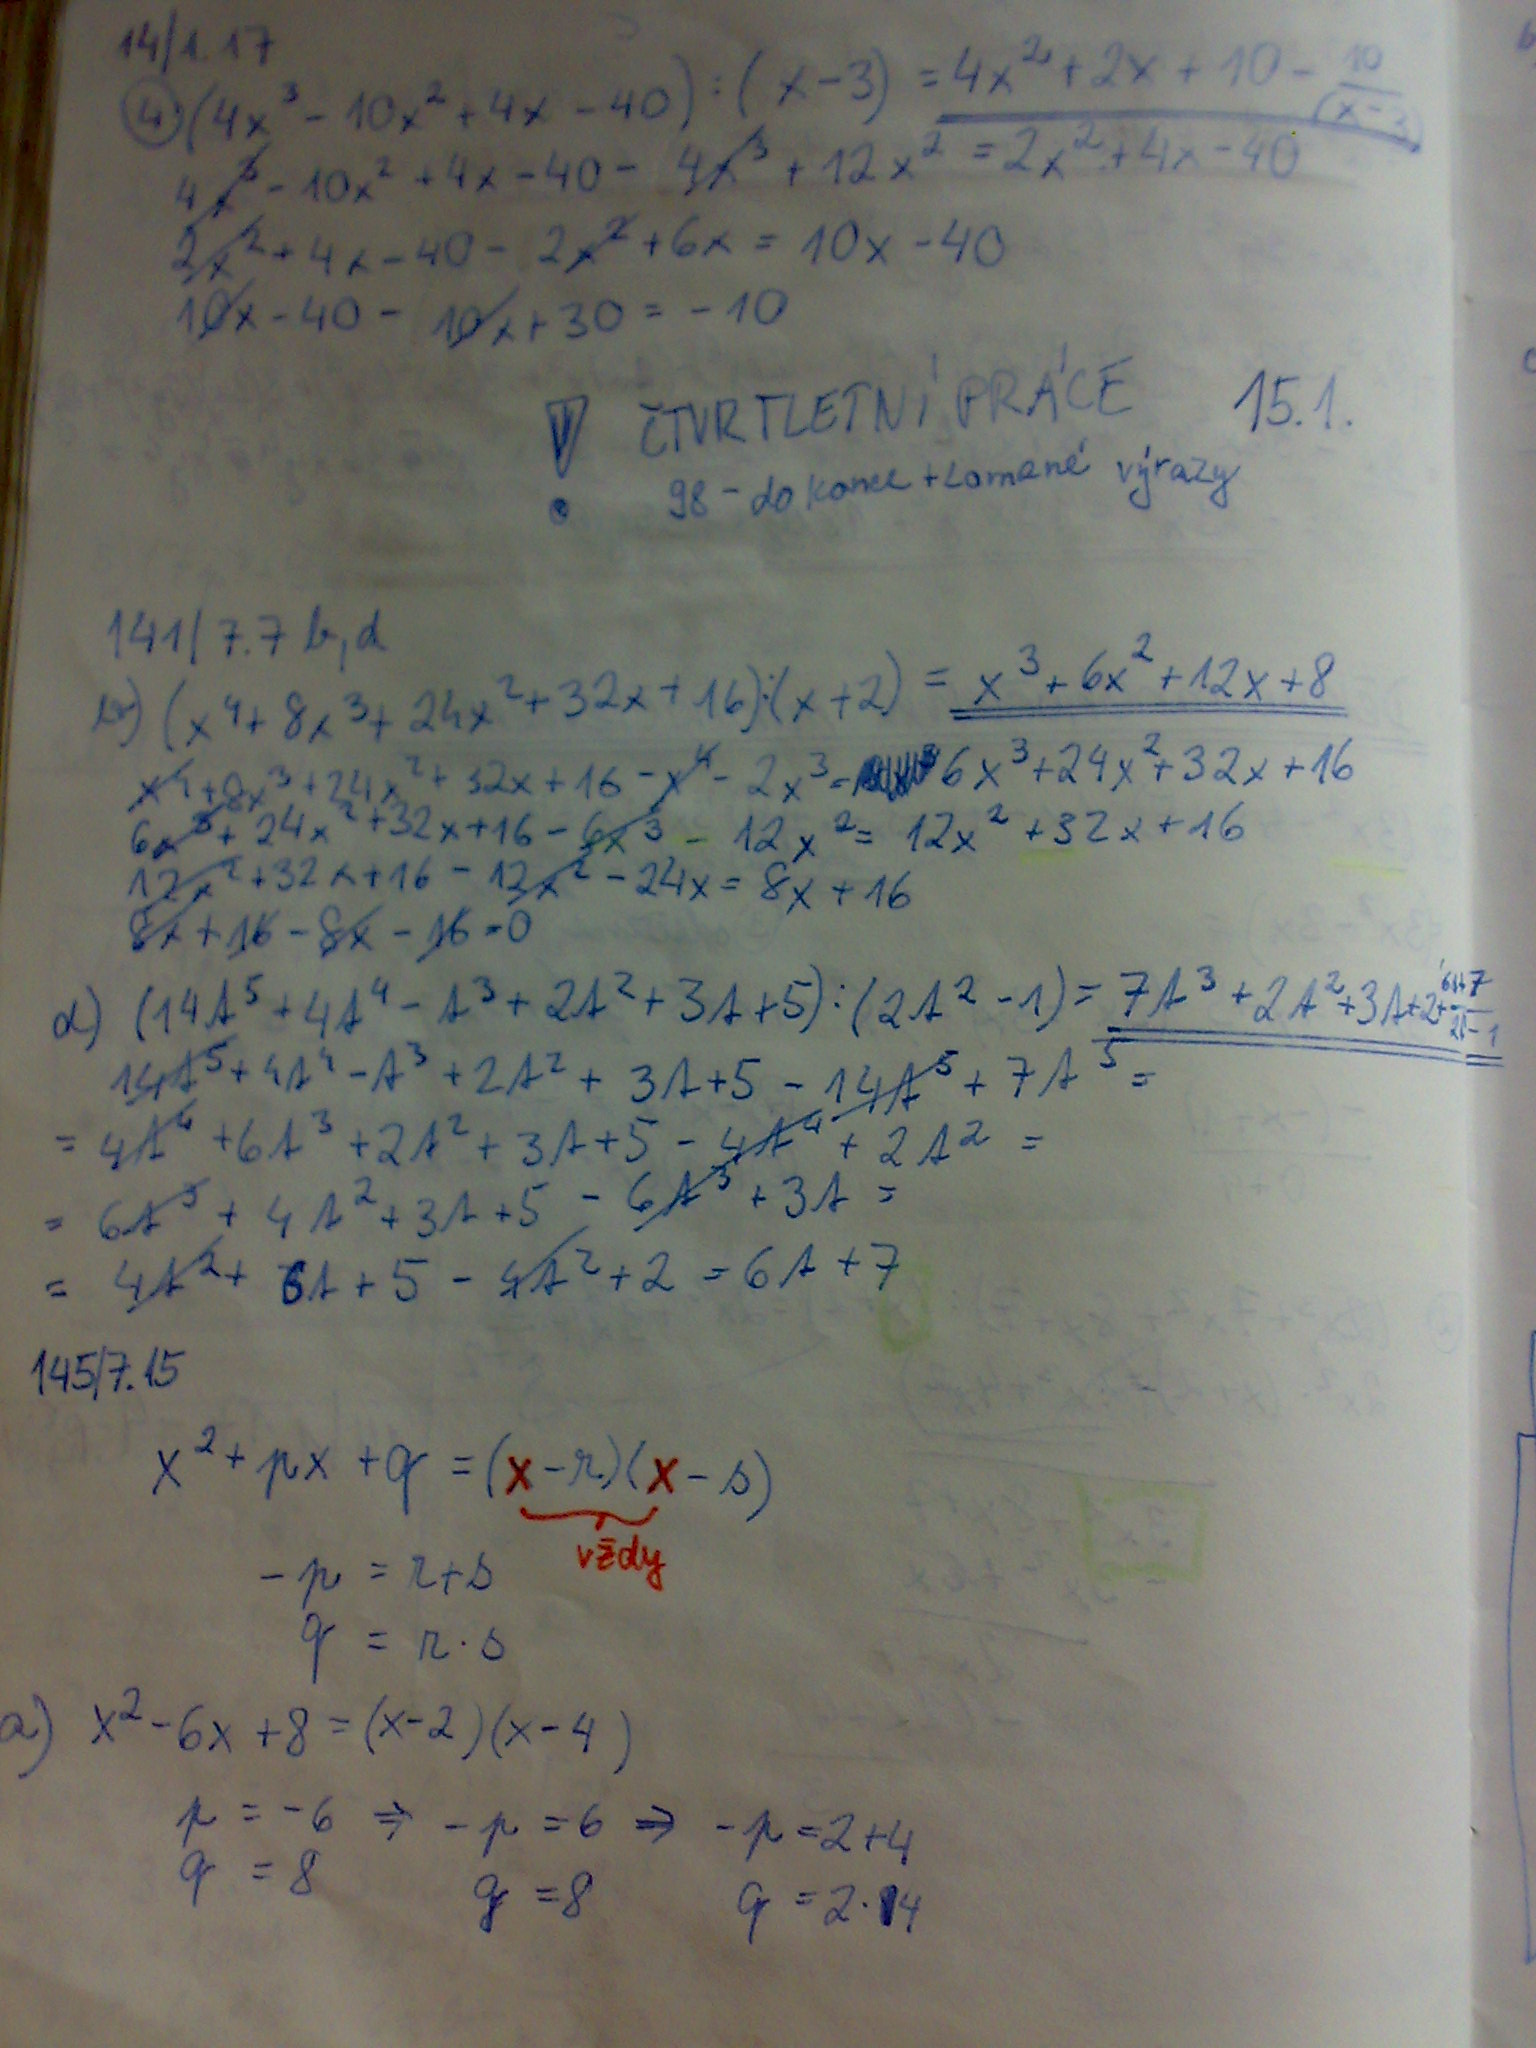 14/1.17
4) (4x³ - 10x² + 4x - 40) : (x - 3) = 4x² + 2x + 10 - 10/(x-3)
4x³ - 10x² + 4x - 40 - 4x³ + 12x² = 2x² + 4x - 40
2x² + 4x - 40 - 2x² + 6x = 10x - 40
10x - 40 - 10x + 30 = -10
! ČTVRTLETNÍ PRÁCE 15.1.
98 - do konce + lomené výrazy
141/7.7 b, d
b) (x⁴ + 8x³ + 24x² + 32x + 16) : (x + 2) = x³ + 6x² + 12x + 8
x⁴ + 8x³ + 24x² + 32x + 16 - x⁴ - 2x³ = 6x³ + 24x² + 32x + 16
6x³ + 24x² + 32x + 16 - 6x³ - 12x² = 12x² + 32x + 16
12x² + 32x + 16 - 12x² - 24x = 8x + 16
8x + 16 - 8x - 16 = 0
d) (14t⁵ + 4t⁴ - t³ + 2t² + 3t + 5) : (2t² - 1) = 7t³ + 2t² + 3t + 2 +
14t⁵ + 4t⁴ - t³ + 2t² + 3t + 5 - 14t⁵ + 7t³ =
= 4t⁴ + 6t³ + 2t² + 3t + 5 - 4t⁴ + 2t² =
= 6t³ + 4t² + 3t + 5 - 6t³ + 3t =
= 4t² + 6t + 5 - 4t² + 2 = 6t + 7
145/7.15
x² + px + q = (x - r)(x - s)
vždy
-p = r + s
q = r · s
a) x² - 6x + 8 = (x - 2)(x - 4)
p = -6 ⇒ -p = 6 ⇒ -p = 2 + 4
q = 8 q = 8 q = 2 · 4